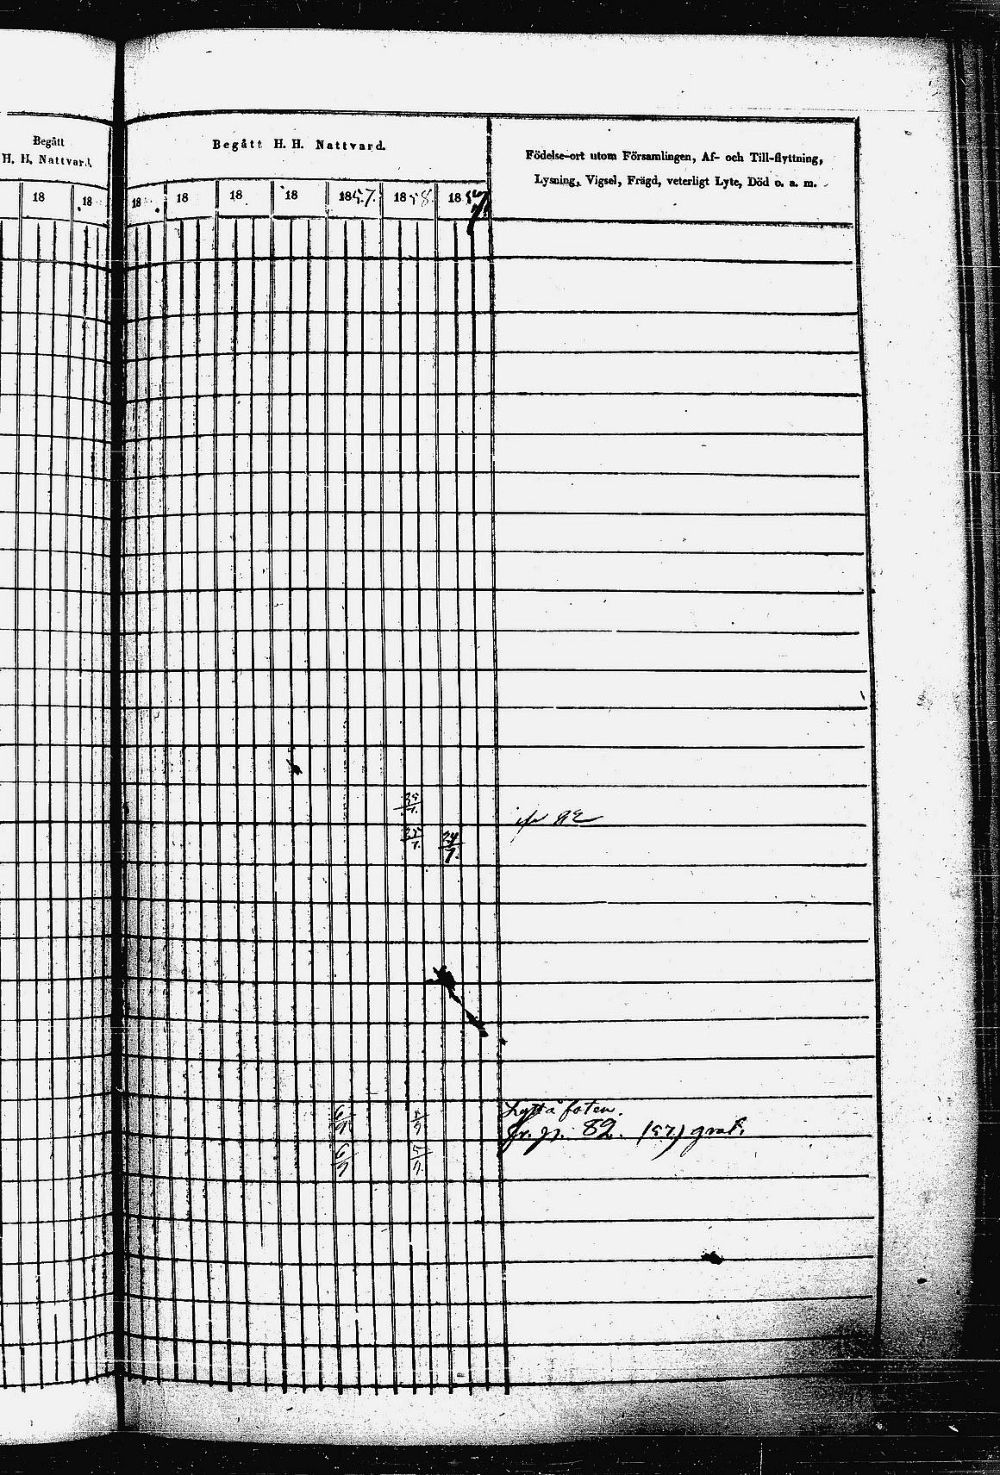 Begått
H. H. Nattvard.
18 18
Begått H. H. Nattvard.
18 18 18 18 1857. 1858. 18
Födelse-ort utom Församlingen, Af- och Till-flyttning,
Lysning, Vigsel, Frägd, veterligt Lyte, Död o. a. m.
24/7.
foten.
82. (57)